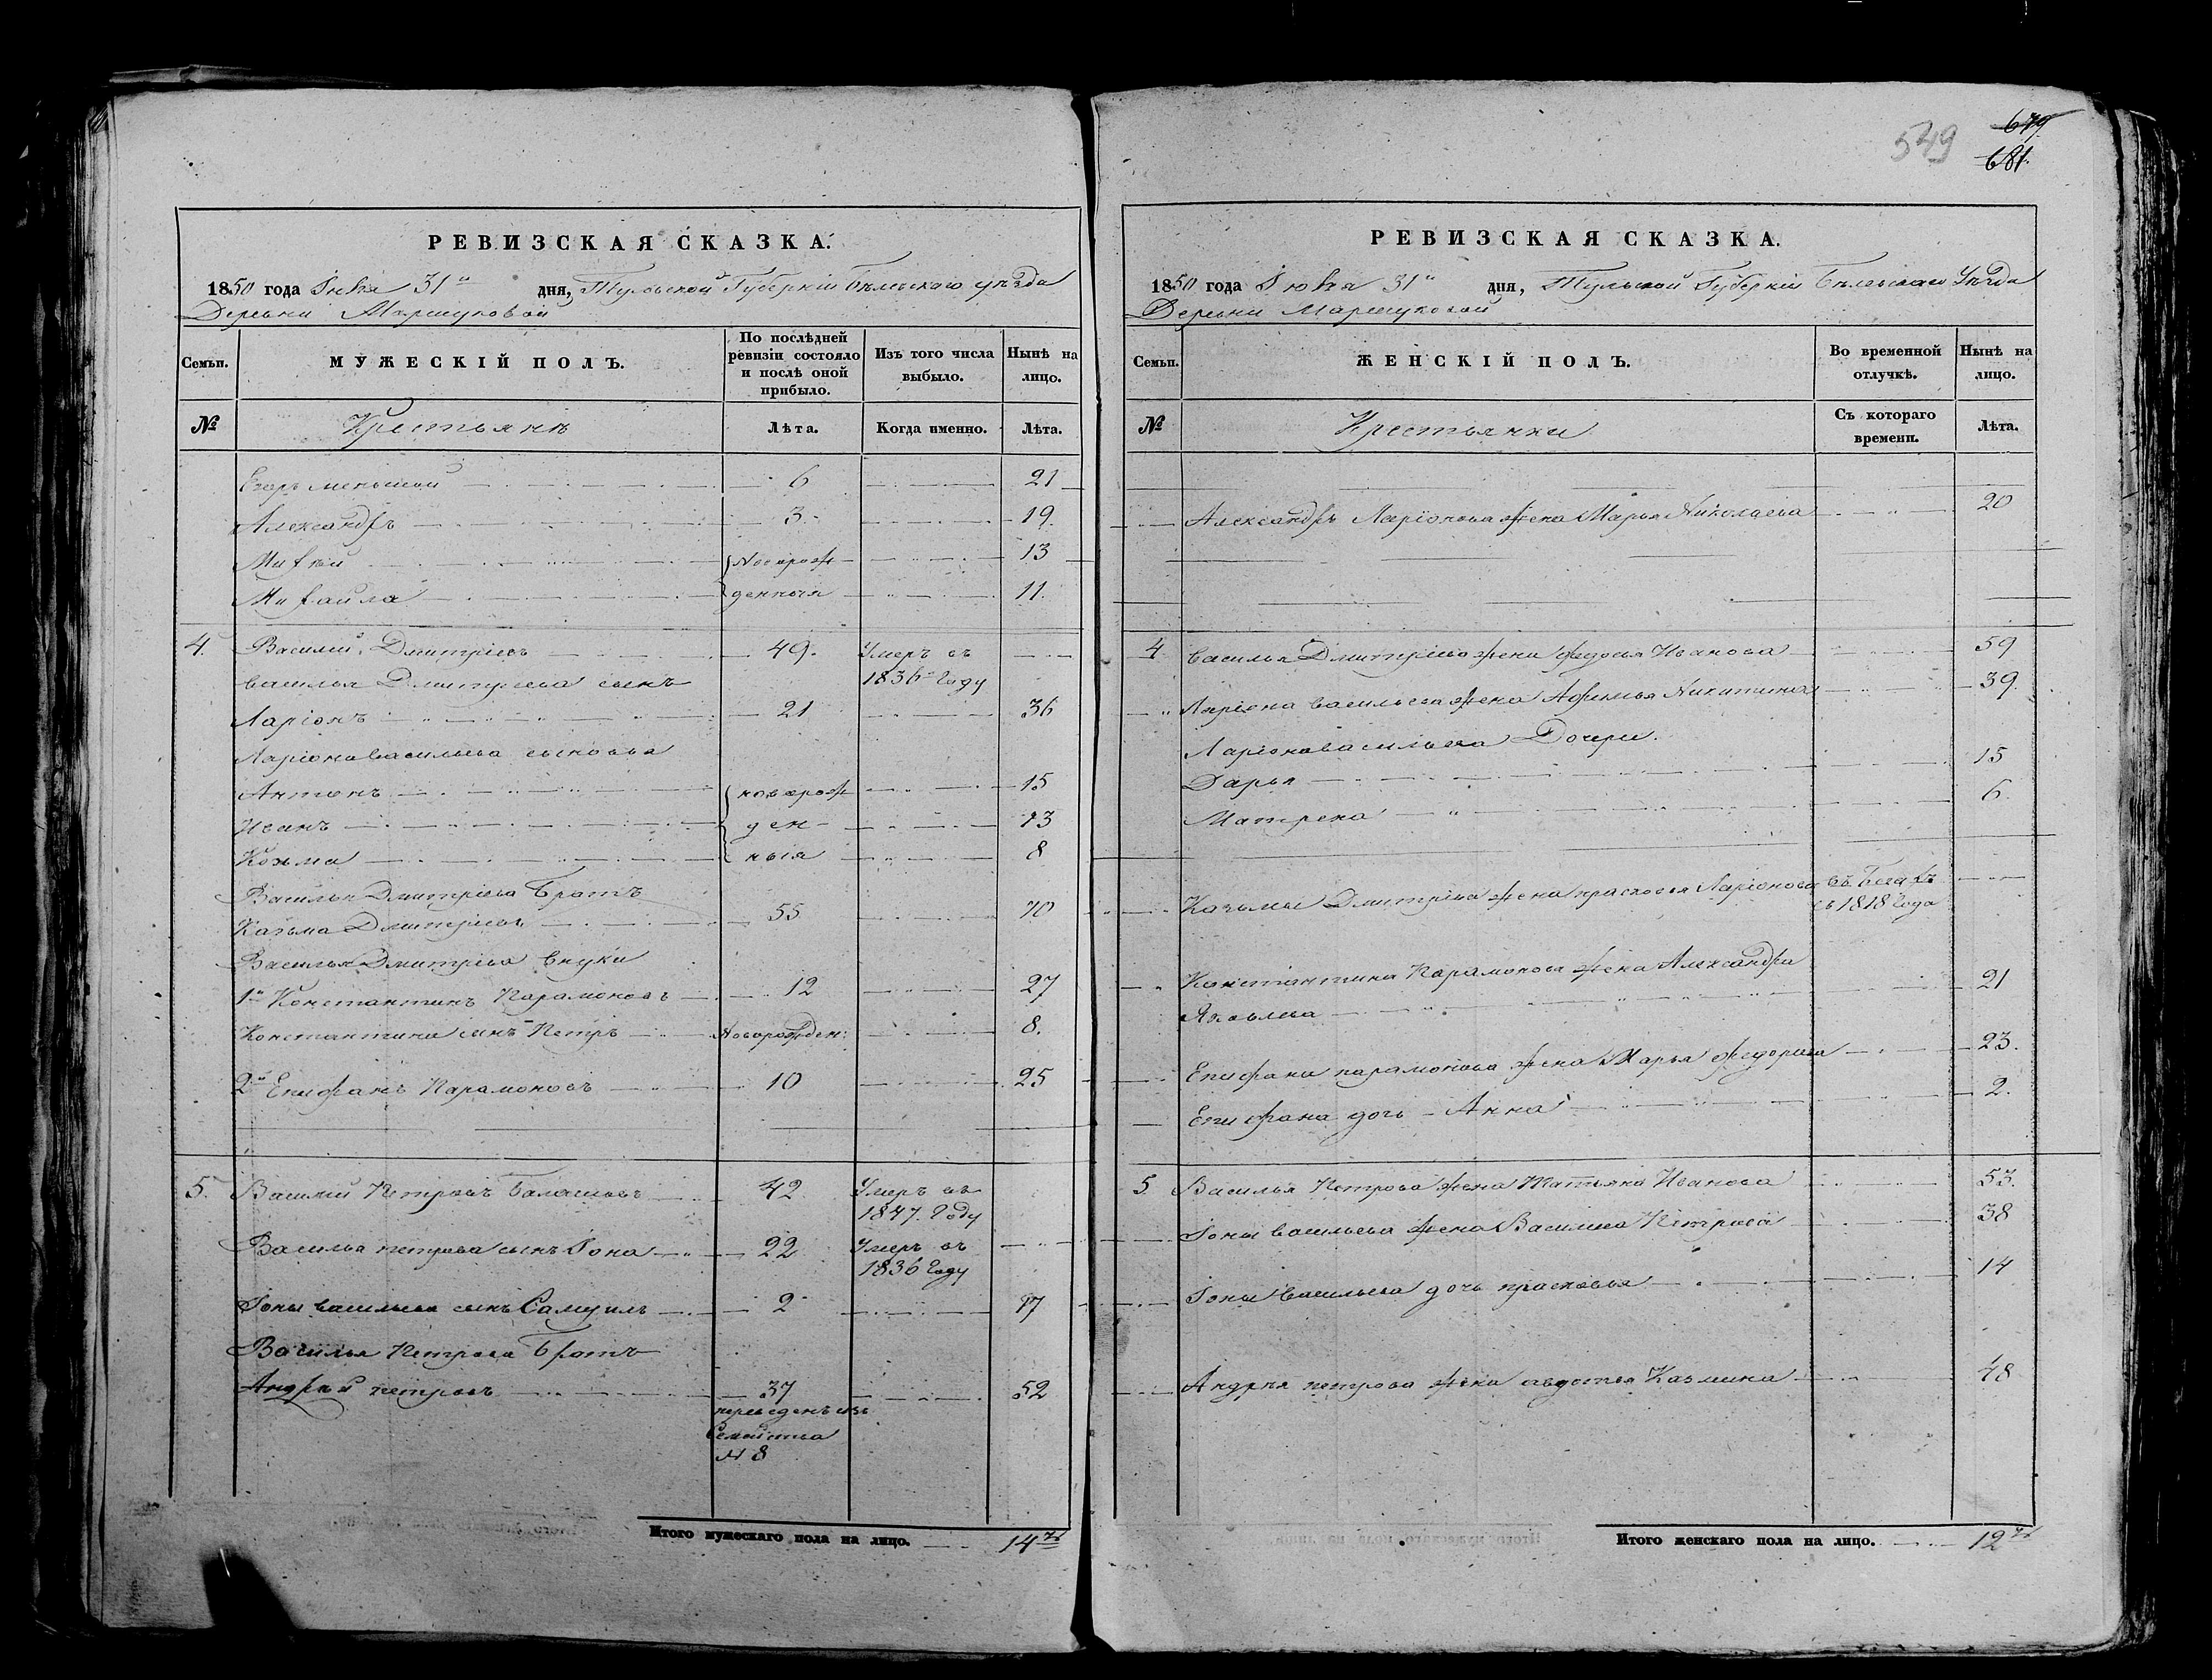 549
679
681.
РЕВИЗСКАЯ СКАЗКА.
1850 года Июля 31го дня, Тульской Губерніи Белевскаго уѣзда
Деревни Маршуковой
Семьи.
МУЖЕСКІЙ ПОЛЪ.
По послѣдней ревизіи состояло и послѣ оной прибыло.
Изъ того числа выбыло.
Нынѣ на лицо.
№
Крестьянъ
Лѣта.
Когда именно.
Лѣта.
Егоръ меньшой 6 21
Александръ 3 19.
Михѣй Новорож 13
Михайла денныя 11.
4. Василій Дмитріевъ 49. Умеръ въ
Василья Дмитріева сынъ 1836 Году
Ларіонъ 21 36
Ларіона Васильева сыновья
Антонъ новорож 15
Иванъ ден 13
Козьма ныя 8
Василья Дмитріева Братъ
Казьма Дмитріевъ 55 70
Василья Дмитріева внуки
1й Константинъ Парамоновъ 12 27
Константина сынъ Петръ Новорожден: 8.
2й Епифанъ Парамоновъ 10 25
5. Василій Петровъ Балашовъ 42 Умеръ въ
1847. Году
Василья петрова сынъ Іона 22 Умеръ въ
1836 Году
Іоны васильева сынъ Самуилъ 2 17
Василья Петрова Братъ
Андрей петровъ 37 52
переведенъ изъ
Семейства
№ 8
Итого мужескаго пола на лицо. 14ть
РЕВИЗСКАЯ СКАЗКА.
1850 года Июля 31го дня, Тульской Губерніи Белевскаго Уѣзда
Деревни Маршуковой
Семьи.
ЖЕНСКІЙ ПОЛЪ.
Во временной отлучкѣ.
Нынѣ на лицо.
№
Крестьянки
Съ котораго времени.
Лѣта.
Александръ Ларіонова жена Марья Николаева 20
4 Василья Дмитріева жена Федосья Иванова 59
Ларіона Васильева жена Афимья Никитина 39.
Ларіона васильева Дочери.
Дарья 15
Матрена 6.
Казьмы Дмитріева жена прасковья Ларіонова въ Бегахъ
съ 1818 Года
Константина Парамонова жена Александра
Яковлева 21
Епифана парамонова жена Марья Федорова 23.
Епифана дочь Анна 2.
5 Василья Петрова жена Татьяна Иванова 53.
Іоны васильева жена Василиса Петрова 38
Іоны Васильева дочь прасковья 14
Андрея петрова жена авдотья Казмина 48
Итого женскаго пола на лицо. 12ть